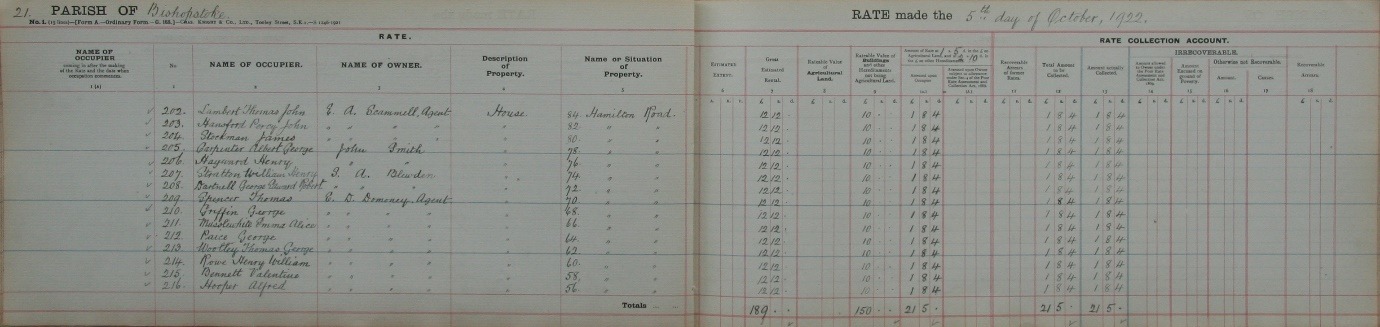 21. PARISH OF Bishopstoke. RATE made the 5th day of October, 1922.
RATE. RATE COLLECTION ACCOUNT.
NAME OF OCCUPIER No. NAME OF OCCUPIER. NAME OF OWNER. Description of Property. Name or Situation of Property. ESTIMATED EXTENT. Gross Estimated Rental. Rateable Value of Agricultural Land. Rateable Value of Buildings and other Hereditaments not being Agricultural Land. Recoverable Arrears of former Rates. Total Amount to be Collected. Amount actually Collected. IRRECOVERABLE. Otherwise not Recoverable. Amount. Causes. Recoverable Arrears.
202. Lambert Thomas John E. A. Scammell, Agent House 84. Hamilton Road. 12 12 10 1 8 4 1 8 4 1 8 4
203. Hansford Percy John " " " " " 82. " " 12 12 10 1 8 4 1 8 4 1 8 4
204. Stockman James " " " " " 80. " " 12 12 10 1 8 4 1 8 4 1 8 4
205. Carpenter Albert George John Smith " 78. " " 12 12 10 1 8 4 1 8 4 1 8 4
206. Hayward Henry " " " 76. " " 12 12 10 1 8 4 1 8 4 1 8 4
207. Stratton William Henry A. Blewden " 74. " " 12 12 10 1 8 4 1 8 4 1 8 4
208. Bartnell George Edward Robert " " " " 72. " " 12 12 10 1 8 4 1 8 4 1 8 4
209. Spencer Thomas E. D. Domoney, Agent " 70. " " 12 12 10 1 8 4 1 8 4 1 8 4
210. Griffin George " " " " " 68. " " 12 12 10 1 8 4 1 8 4 1 8 4
211. Musslewhite Emma Alice " " " " " 66. " " 12 12 10 1 8 4 1 8 4 1 8 4
212. Paice George " " " " " 64. " " 12 12 10 1 8 4 1 8 4 1 8 4
213. Woolley Thomas George " " " " " 62. " " 12 12 10 1 8 4 1 8 4 1 8 4
214. Rowe Henry William " " " " " 60. " " 12 12 10 1 8 4 1 8 4 1 8 4
215. Bennett Valentine " " " " " 58. " " 12 12 10 1 8 4 1 8 4 1 8 4
216. Hooper Alfred " " " " " 56. " " 12 12 10 1 8 4 1 8 4 1 8 4
Totals 189 150 21 5 21 5 21 5